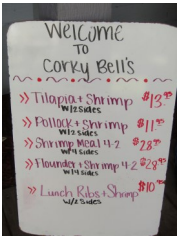 Welcome
To
Corky Bell's
» Tilapia + Shrimp $13.95
w/2 sides
» Pollock + Shrimp $11.95
w/2 sides
» Shrimp Meal 4-2 $28.95
w/4 sides
» Flounder + Shrimp 4-2 $28.95
w/4 sides
» Lunch Ribs + Shrimp $10.95
w/2 sides